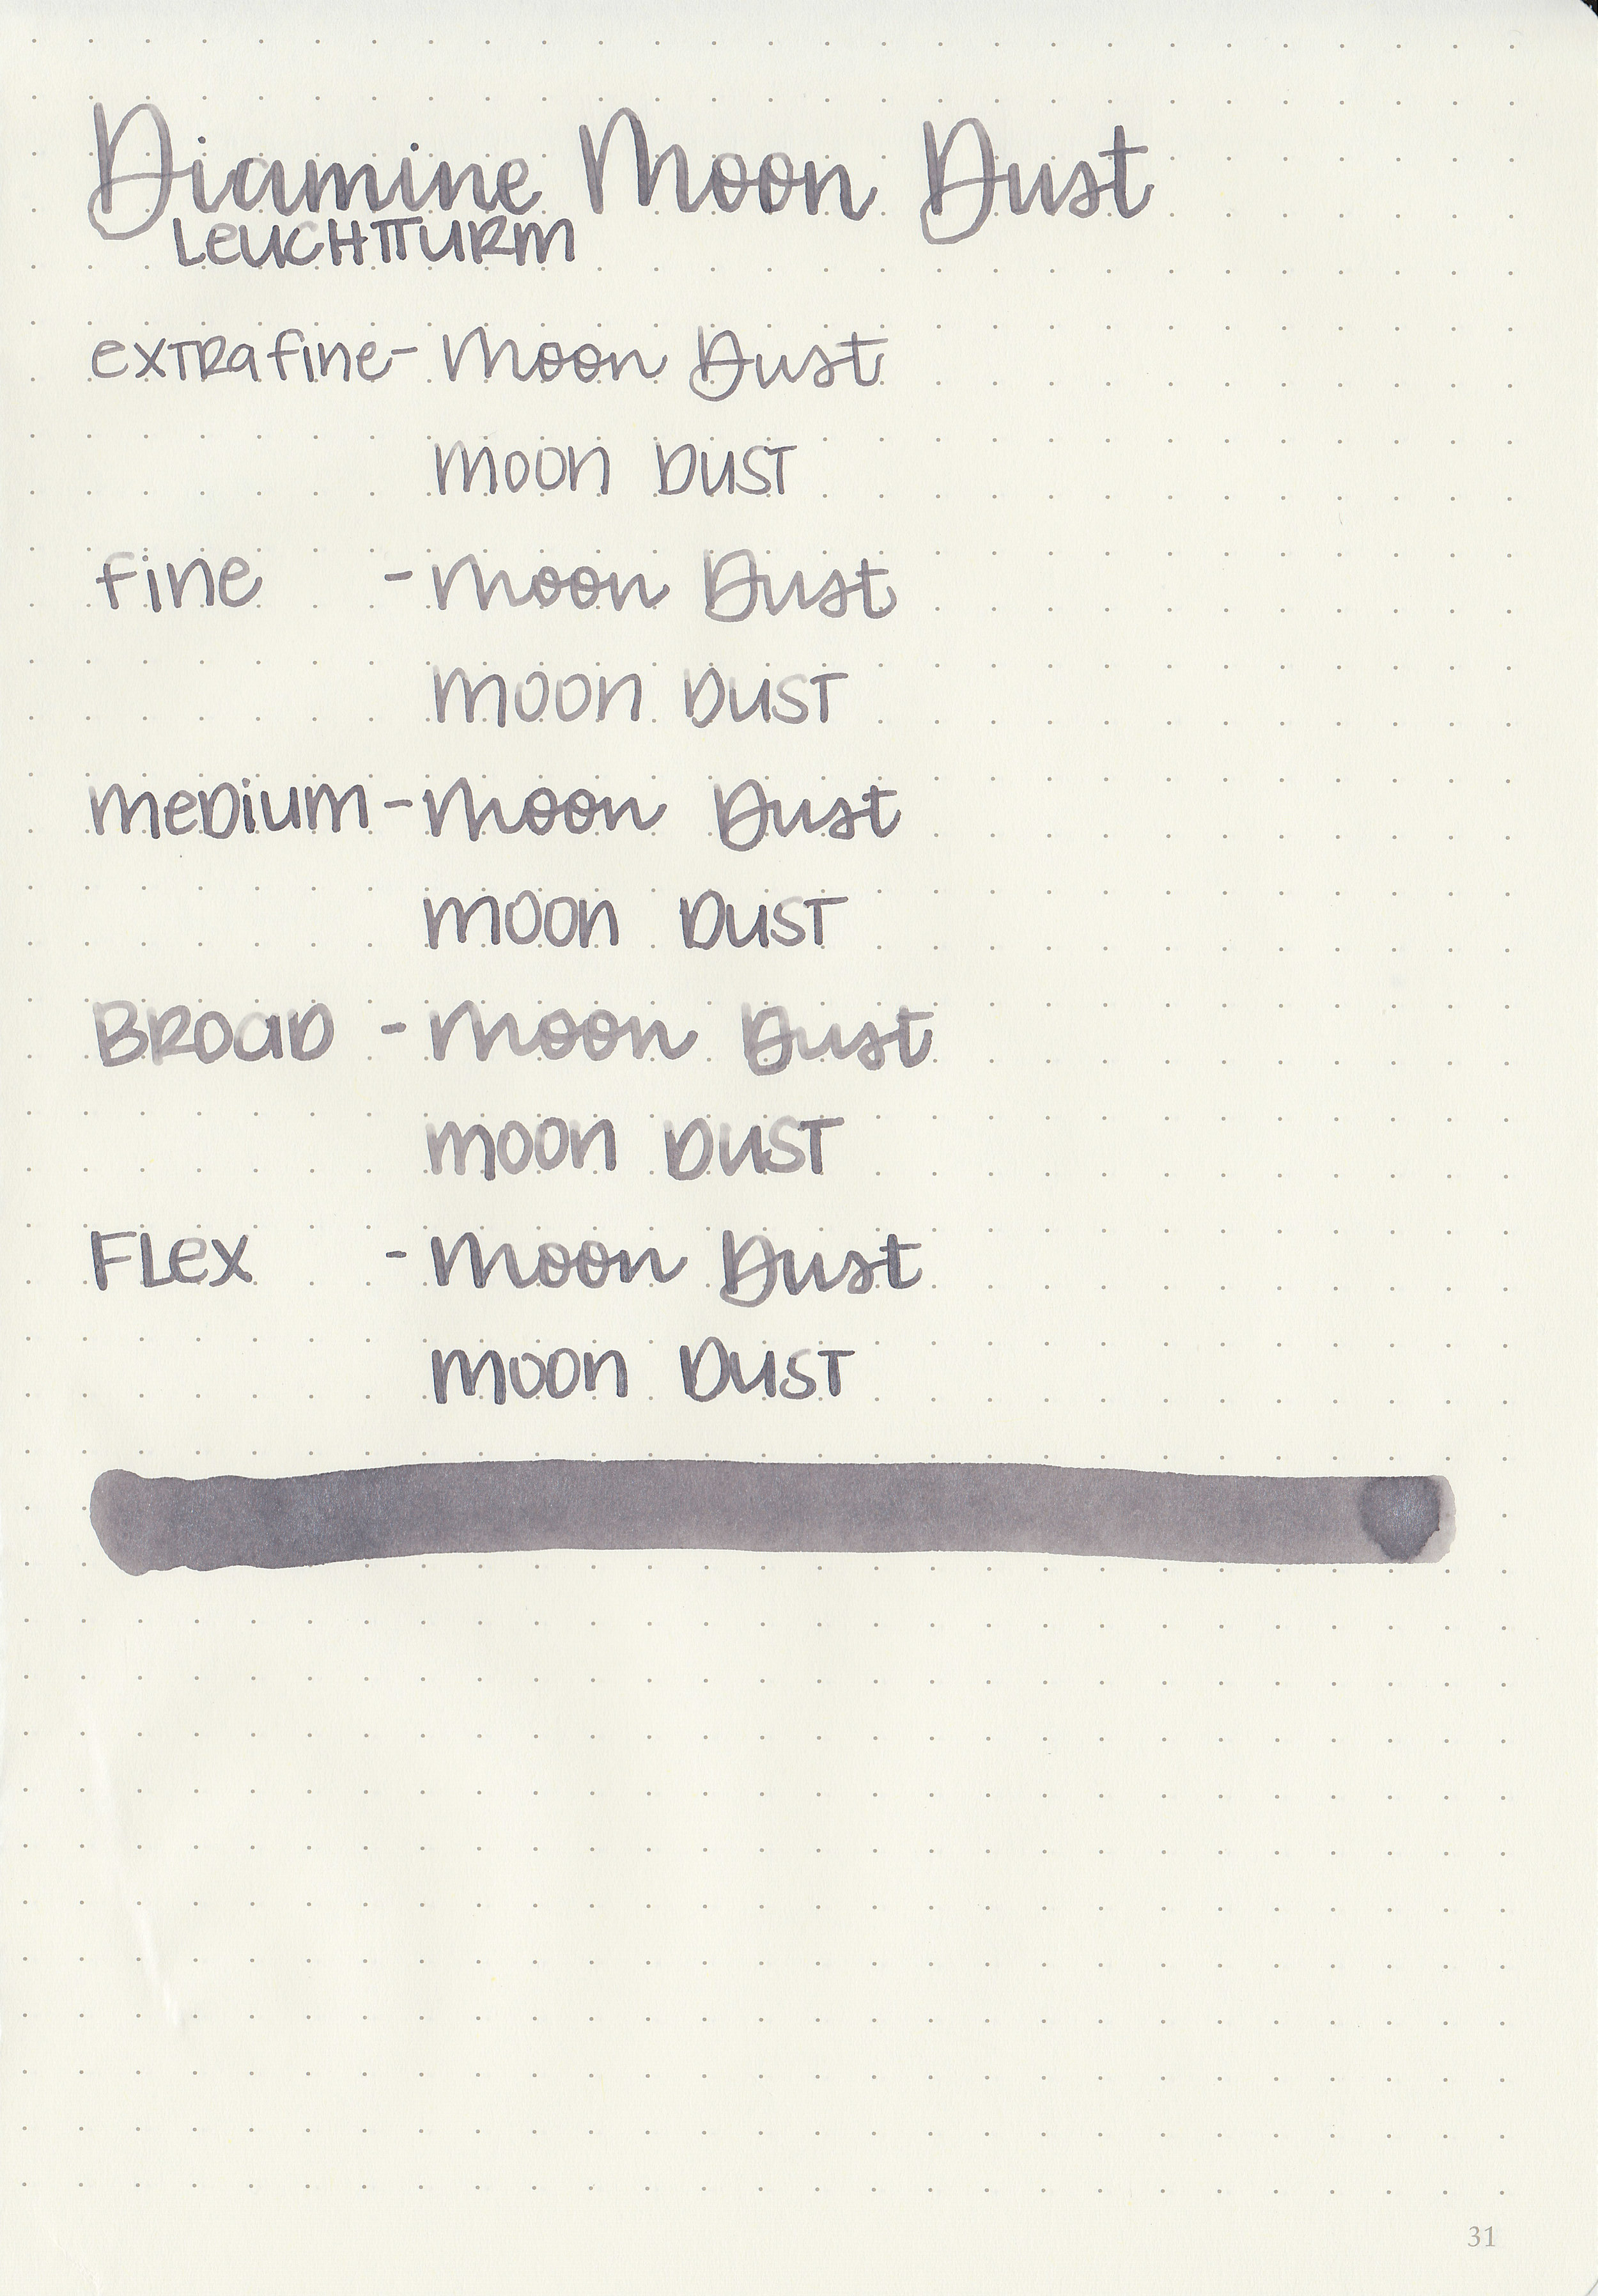 Diamine Moon Dust
LeUCHTTURM
exTRafine- Moon Dust
moon DusT
fine - Moon Dust
moon DusT
meDium - Moon Dust
moon DusT
BROaD - Moon Dust
moon DusT
FLex - Moon Dust
moon DusT
31